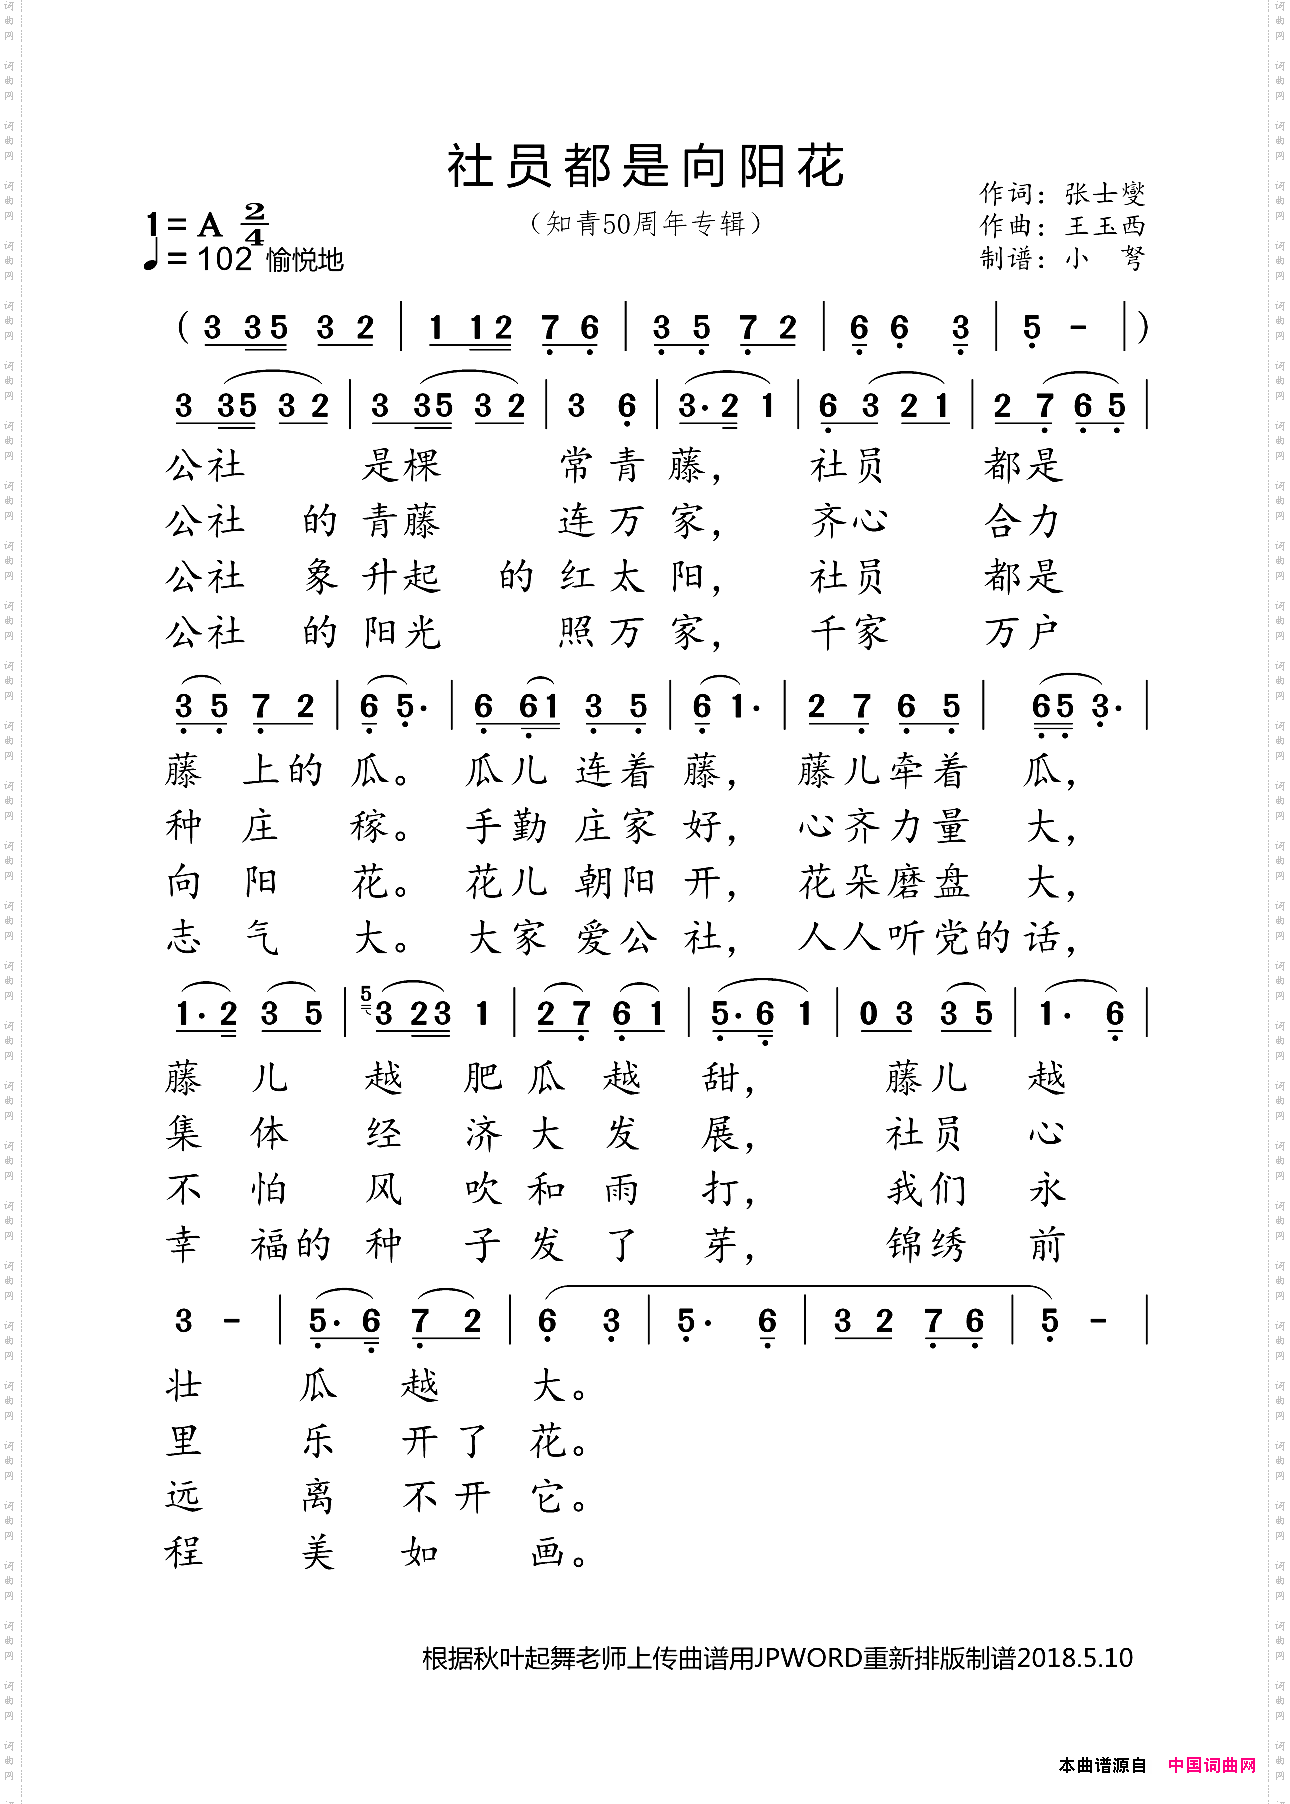 社员都是向阳花
（知青50周年专辑）
作词：张士燮
作曲：王玉西
制谱：小 弩
1=A 2/4
♩=102 愉悦地
( 3 35 3 2 | 1 12 7 6 | 3 5 7 2 | 6 6 3 | 5 - | )
3 35 3 2 | 3 35 3 2 | 3 6 | 3· 2 1 | 6 3 2 1 | 2 7 6 5 |
公社 是棵 常青藤， 社员 都是
公社 的青藤 连万家， 齐心 合力
公社 象升起 的红太阳， 社员 都是
公社 的阳光 照万家， 千家 万户
3 5 7 2 | 6 5· | 6 61 3 5 | 6 1· | 2 7 6 5 | 65 3· |
藤 上的瓜。 瓜儿连着藤， 藤儿牵着 瓜，
种 庄 稼。 手勤庄家好， 心齐力量 大，
向 阳 花。 花儿朝阳开， 花朵磨盘 大，
志 气 大。 大家爱公社， 人人听党的话，
1· 2 3 5 | 5 3 23 1 | 2 7 6 1 | 5· 6 1 | 0 3 3 5 | 1· 6 |
藤 儿 越 肥瓜越 甜， 藤儿 越
集 体 经 济大发 展， 社员 心
不 怕 风 吹和雨 打， 我们 永
幸 福的种 子发了 芽， 锦绣 前
3 - | 5· 6 7 2 | 6 3 | 5· 6 | 3 2 7 6 | 5 - |
壮 瓜 越 大。
里 乐 开了花。
远 离 不开它。
程 美 如 画。
根据秋叶起舞老师上传曲谱用JPWORD重新排版制谱2018.5.10
本曲谱源自 中国词曲网